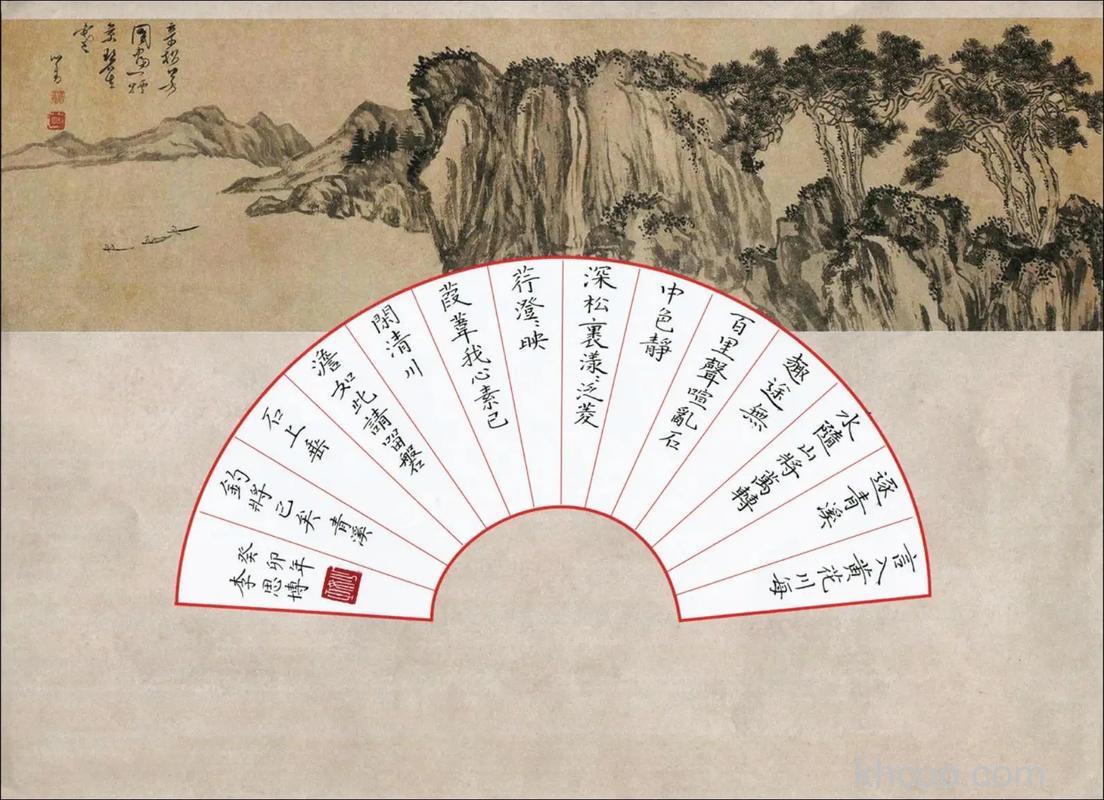 言入黄花川每
逐青溪
水隨山將萬轉
趣途無
百里聲喧亂石
中色靜
深松裏漾々泛菱
荇澄々映
葭葦我心素已
閑清川
澹如此請留磐
石上垂
釣將已矣 青溪
癸卯年
李思博
khcuo.com